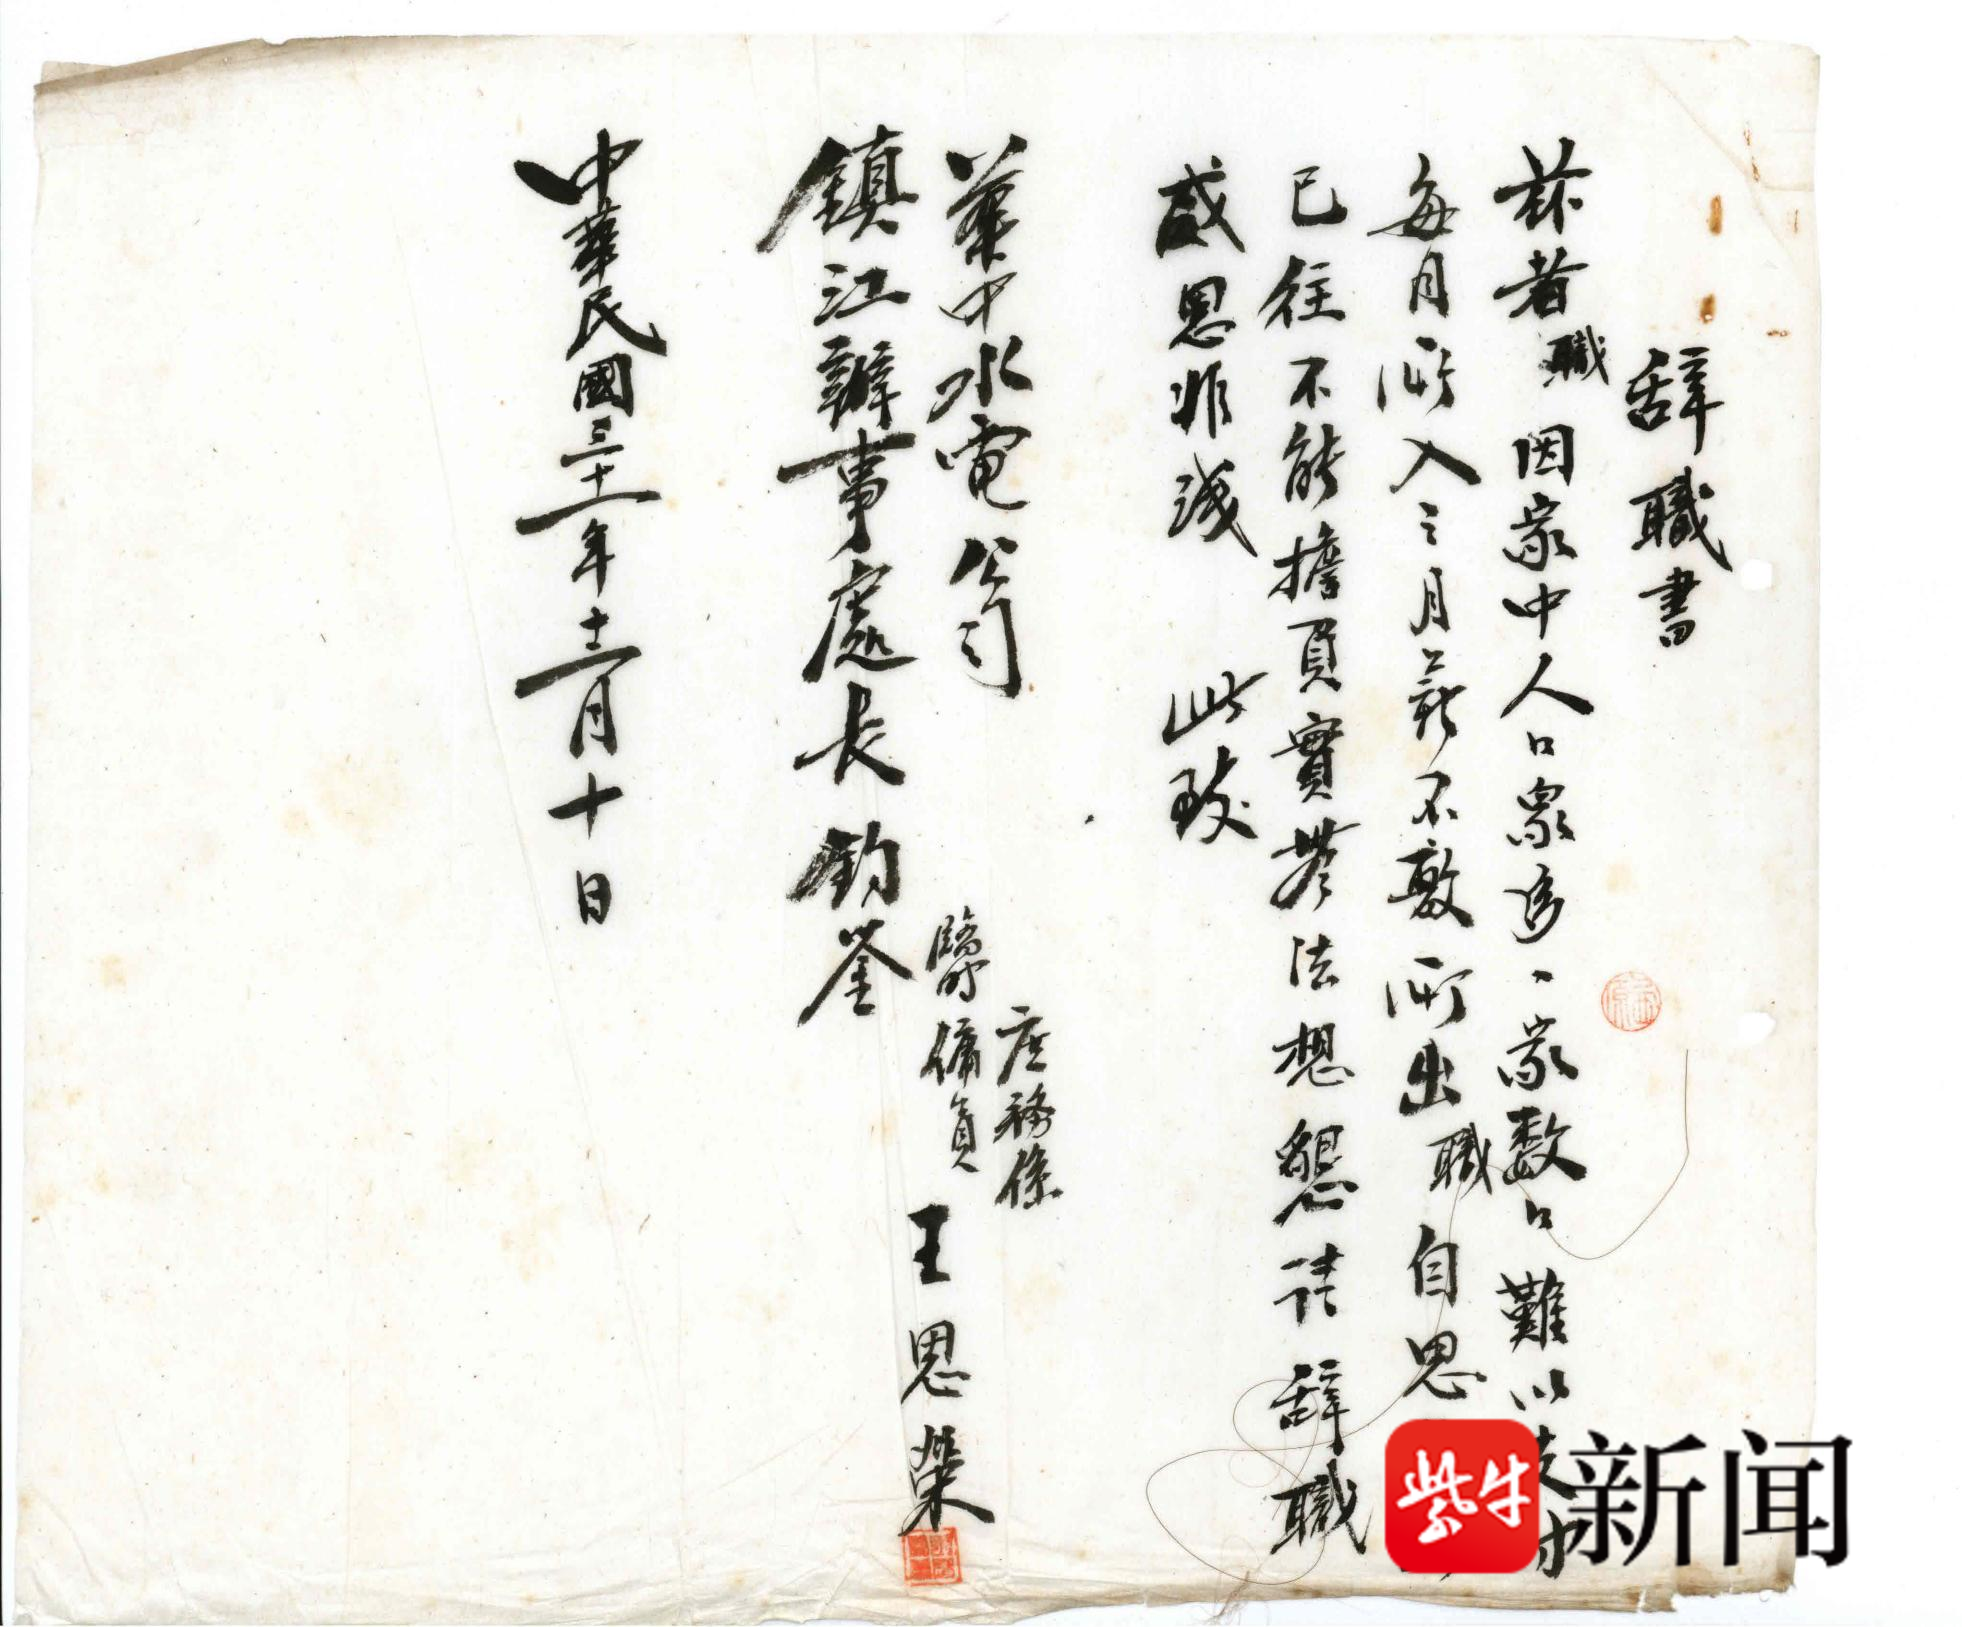 辞職書
茲者職因家中人口眾多、家数口難以支
每月所入之月薪不敷所出職自思
已往不能擔負實無法想懇請辞職
感恩非淺 此致
華中水電公司
鎮江辦事處長 鈞鉴
庶務係
臨時傭員
王恩榮
中華民國三十一年十二月十日
紫牛新闻